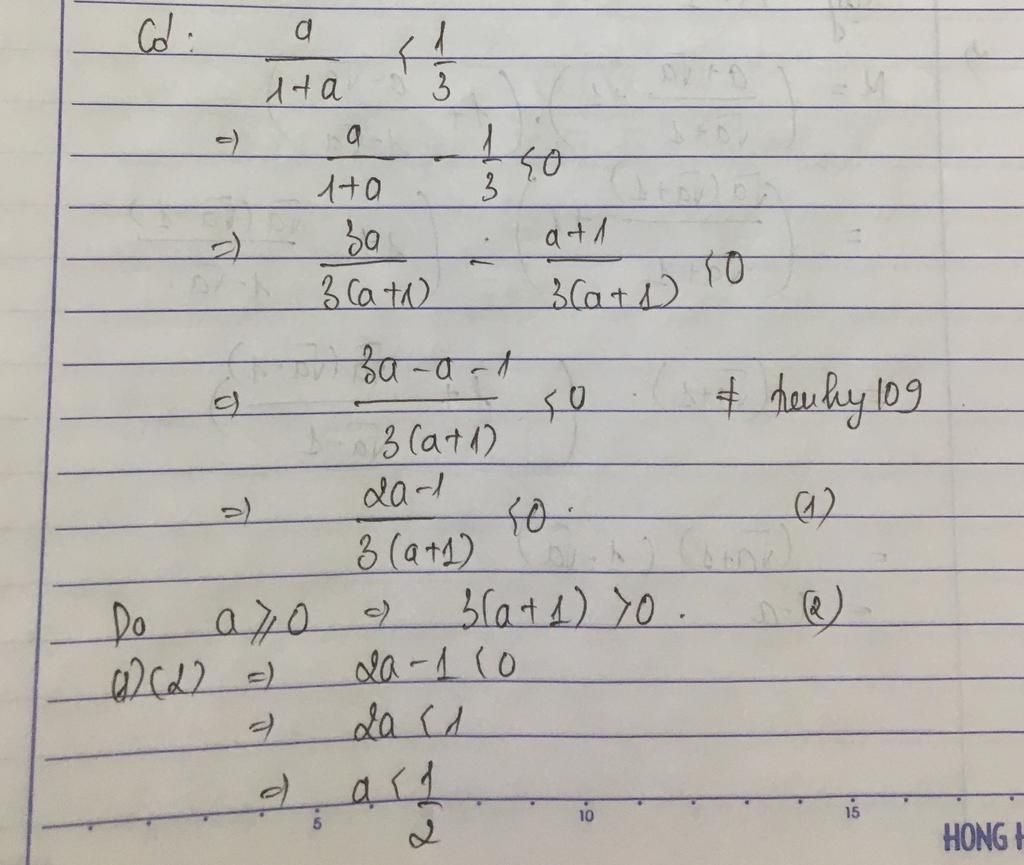 Cd: a/(1+a) < 1/3
=) a/(1+a) - 1/3 < 0
=) 3a/(3(a+1)) - (a+1)/(3(a+1)) < 0
=) (3a-a-1)/(3(a+1)) < 0 ≠ henhy109
=) (2a-1)/(3(a+1)) < 0. (1)
Do a ≥ 0 =) 3(a+1) > 0. (2)
(1)(2) =) 2a-1 < 0
=) 2a < 1
=) a < 1/2
5 10 15
HONG H